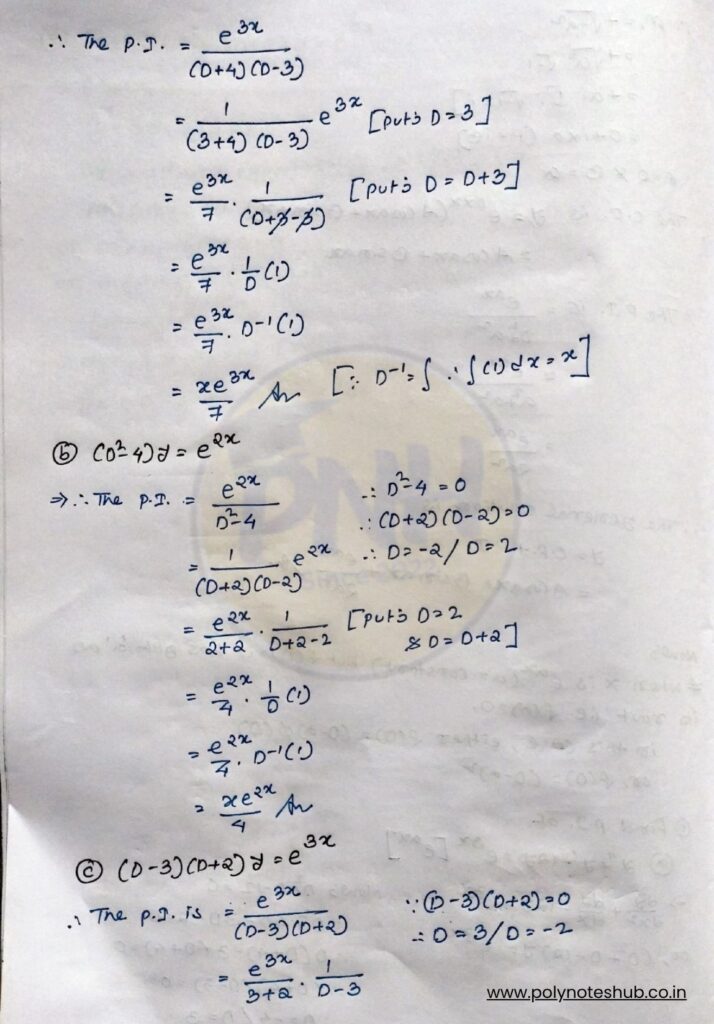 ∴ The P.I. = e^{3x} / (D+4)(D-3)
= 1 / (3+4)(D-3) e^{3x} [putŝ D=3]
= e^{3x}/7 · 1 / (D+3-3) [putŝ D = D+3]
= e^{3x}/7 · 1/D (1)
= e^{3x}/7 · D^{-1}(1)
= xe^{3x}/7 An [∵ D^{-1} = ∫ ∴ ∫(1)dx = x]
ⓑ (D²-4)y = e^{2x}
⇒ ∴ The P.I. = e^{2x} / D²-4 ∴ D²-4 = 0
∴ (D+2)(D-2)=0
= 1 / (D+2)(D-2) e^{2x} ∴ D=-2/D=2
= e^{2x} / 2+2 · 1 / D+2-2 [putŝ D=2
& D=D+2]
= e^{2x}/4 · 1/D (1)
= e^{2x}/4 · D^{-1}(1)
= xe^{2x}/4 An
ⓒ (D-3)(D+2)y = e^{3x}
∴ The P.I. is = e^{3x} / (D-3)(D+2) ∵ (D-3)(D+2)=0
∴ D=3/D=-2
= e^{3x} / 3+2 · 1 / D-3
PNH
www.polynoteshub.co.in